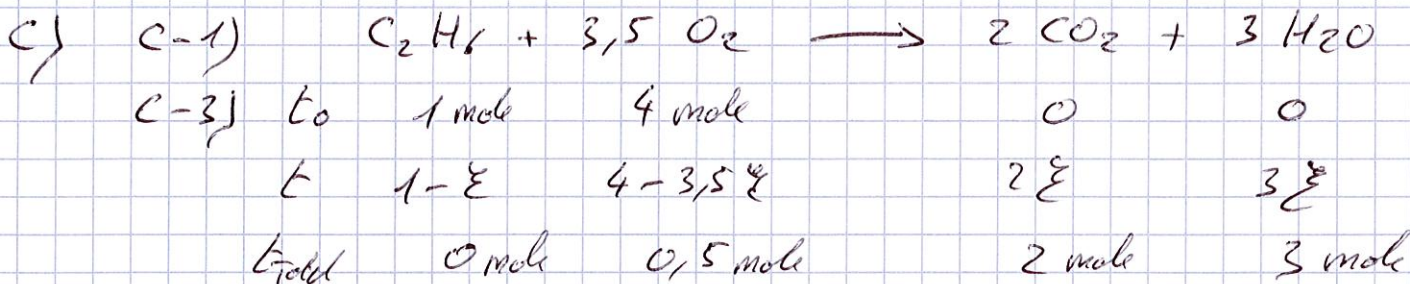 C) C-1) C₂H₆ + 3,5 O₂ ⟶ 2 CO₂ + 3 H₂O
C-3) t₀ 1 mole 4 mole 0 0
t 1-ξ 4-3,5ξ 2ξ 3ξ
0 mole 0,5 mole 2 mole 3 mole